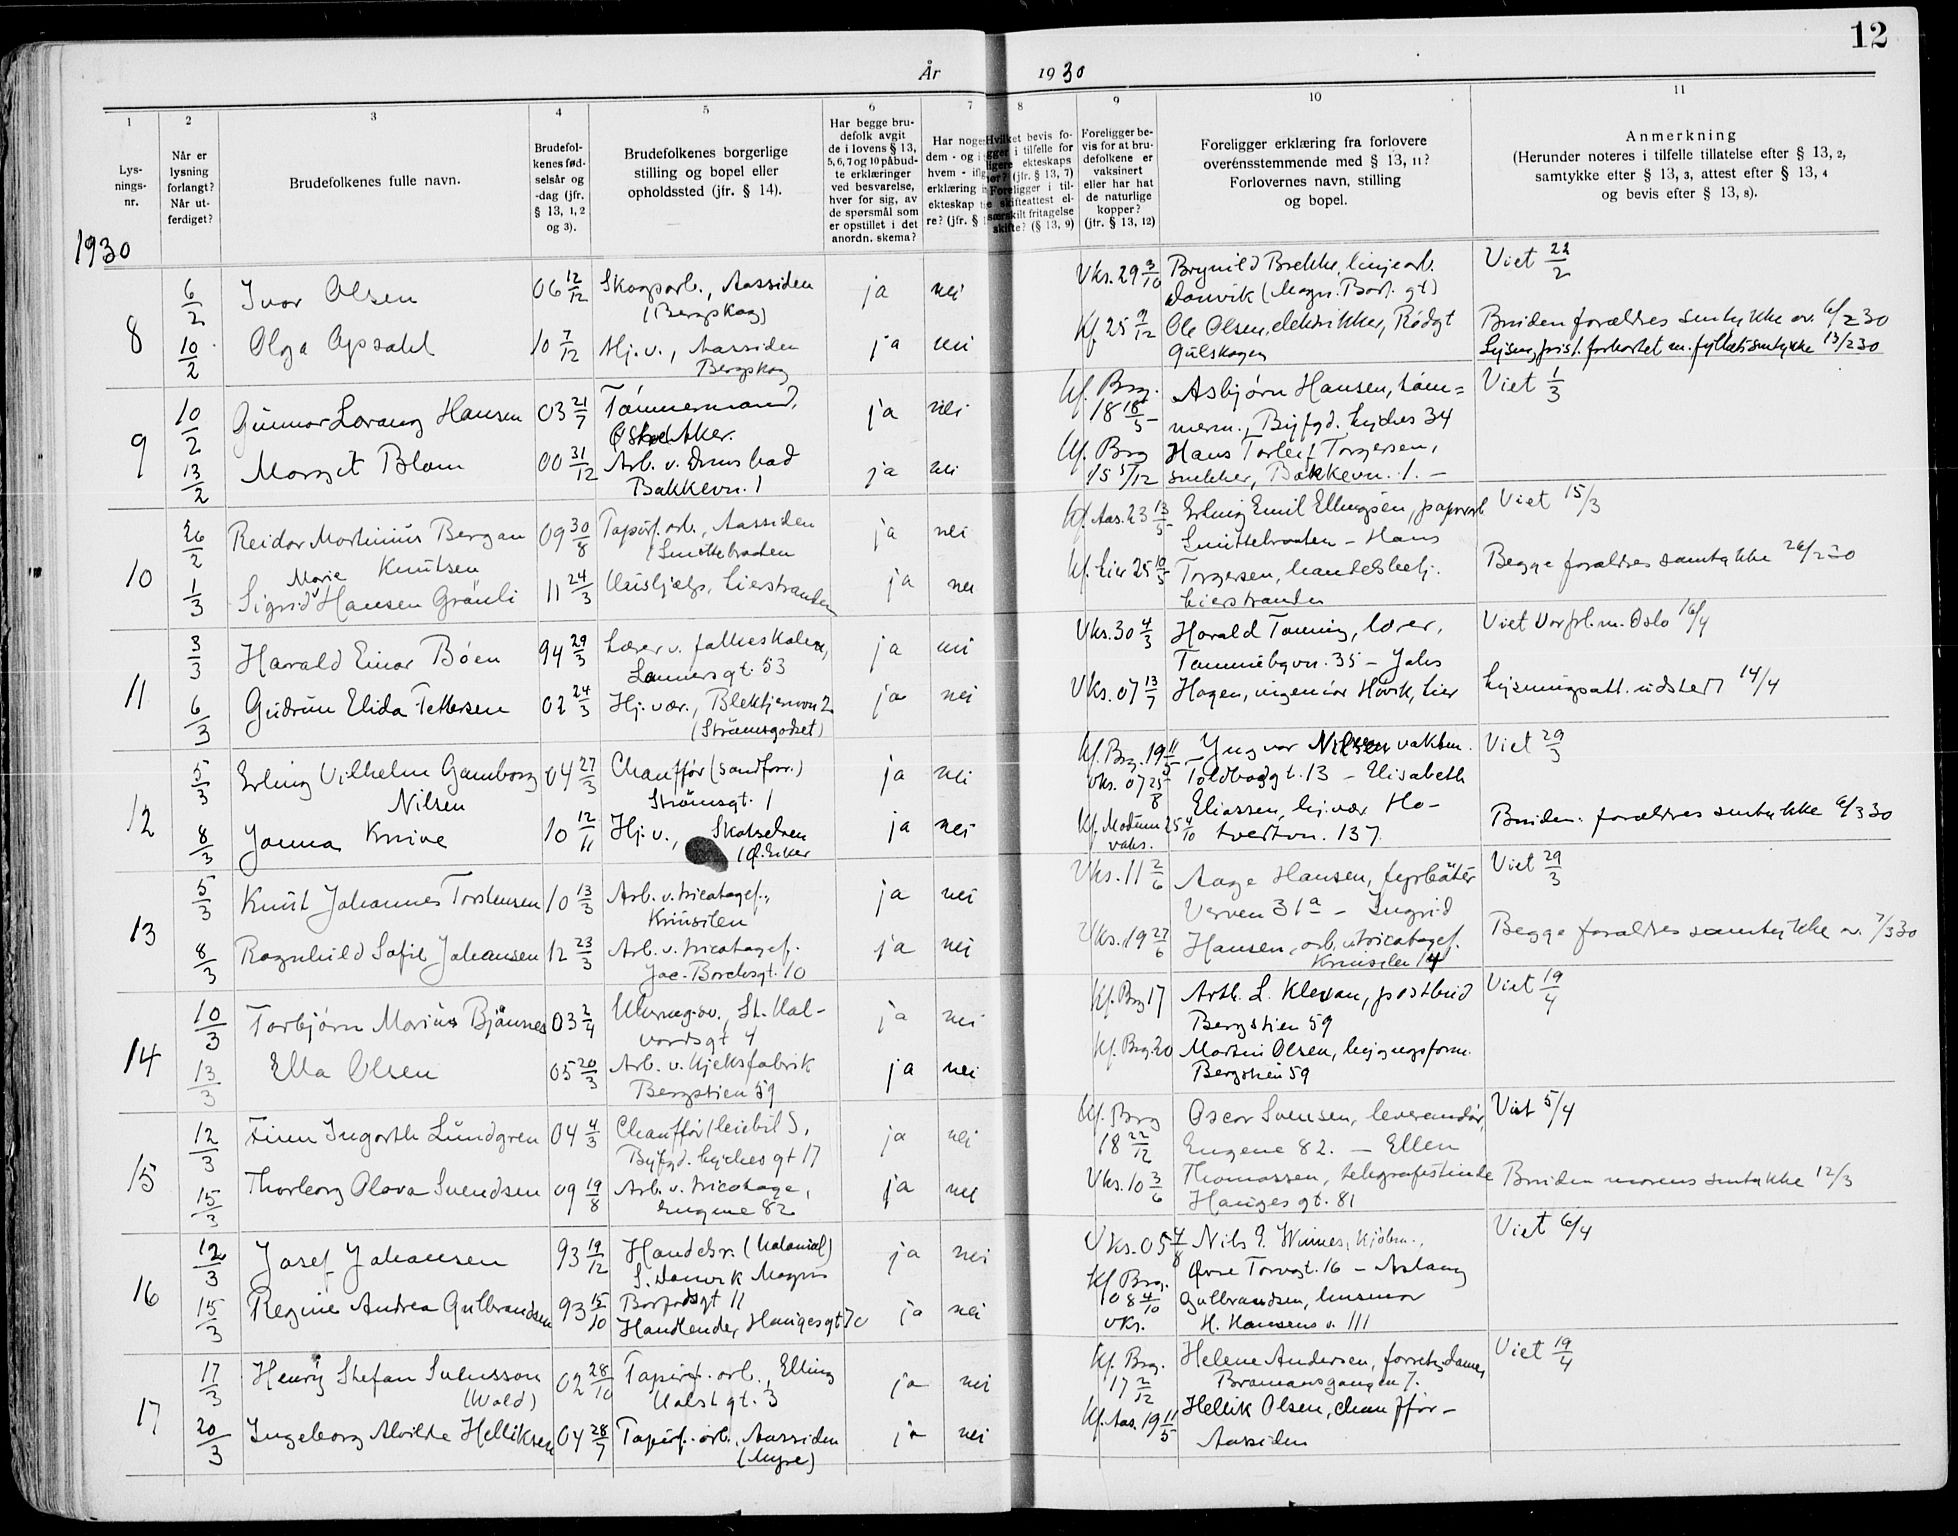 12
År 1930
1 2 3 4 5 6 7 8 9 10 11
Lys-
nings-
nr.
Når er
lysning
forlangt?
Når ut-
ferdiget?
Brudefolkenes fulle navn.
Brudefol-
kenes fød-
selsår og
-dag (jfr.
§ 13, 1, 2
og 3).
Brudefolkenes borgerlige
stilling og bopel eller
opholdssted (jfr. § 14).
Har begge bru-
defolk avgit
de i lovens § 13,
5, 6, 7 og 10 påbud-
te erklæringer
ved besvarelse,
hver for sig, av
de spørsmål som
er opstillet i det
anordn. skema?
Har noge
dem - og i
hvem - ifl
erklæring i
ekteskap t
re? (jfr. §
Hvilket bevis fo-
religger i tilfelle for
ekteskaps
(jfr. § 13, 7)
Foreligger i til-
skifteattest el-
særskilt fritagelse
skifte? (§ 13, 9)
Foreligger be-
vis for at bru-
defolkene er
vaksinert
eller har hat
de naturlige
kopper?
(jfr. § 13, 12)
Foreligger erklæring fra forlovere
overensstemmende med § 13, 11?
Forlovernes navn, stilling
og bopel.
Anmerkning
(Herunder noteres i tilfelle tillatelse efter § 13, 2,
samtykke efter § 13, 3, attest efter § 13, 4
og bevis efter § 13, 8).
1930
8
6/2 Ivar Olsen 06 12/12 Skogsarb., Aassiden ja nei Vks. 29 3/10 Brynild Brekke, linjearb. Viet 22/2
(Bergskog) Danvik (Magn. Barf. gt)
10/2 Olga Opsahl 10 7/12 Hj. v., Aassiden ja nei Kf 25 9/12 Ole Olsen, elektrikker, Rødgt Bruden forældres samtykke av 6/2 30
Bergskog Gulskogen Lysn. frist forkortet m. fylkets samtykke 13/2 30
9
10/2 Gunnar Lorang Hansen 03 21/7 Tømmermand, ja nei Kf. Brg. 18 18/5 Asbjørn Hansen, tøm- Viet 1/3
Aker. merm., Byfgd. Lyches 34
13/2 Margit Blom 00 31/12 Arb. v. Drms bad ja nei Kf. Brg 15 5/12 Hans Torleif Torgersen,
Bakkevn. 1 snekker, Bakkevn. 1. –
10
26/2 Reidar Martinius Bergan 09 30/8 Papirf. arb., Aassiden ja nei Kf. Aas. 23 13/5 Erling Emil Ellingsen, papirarb Viet 15/3
Knutsen (Smittebraaten Smittebraaten – Hans
1/3 Sigrid Marie Hansen Grønli 11 24/3 Huishjelp, Lierstranden ja nei Kf. Lier 25 10/5 Torgersen, handelsbetj. Begge forældres samtykke 26/2 30
Lierstranden
11
3/3 Harald Einar Bøen 94 29/3 Lærer v. folkeskolen, ja nei Vks. 30 4/3 Harald Tanning, lærer, Viet Vor frl. m. Oslo 16/4
Lammersgt. 53 35 – Johs
6/3 Gudrun Elida Pettersen 02 24/3 Hj. vær., Blektjernvn 2 ja nei Vks. 07 13/7 Hagen, ingeniør Høvik, Lier Lysningsatt. udstedt 14/4
(Strømsgodset)
12
5/3 Erling Vilhelm Gamborg 04 27/3 Chauffør (sandforr.) ja nei Kf. Brg. 19 11/5 Yngvar Nilsen vaktm. Viet 29/3
Nilsen Strømsgt. 1 Vks. 07 25/8 Toldbodgt. 13 – Elisabeth
8/3 Jonna Knive 10 12/11 Hj. v., Skotselven ja nei Kf. Modum 25 4/10 Eliassen, hj. vær Ho- Bruden. forældres samtykke 6/3 30
(Ø. Eiker vaks. tvedtvn. 137
13
5/3 Knut Johannes Torstensen 10 13/3 Arb. v. tricotagef., ja nei Vks. 11 2/6 Aage Hansen, fyrbøter Viet 29/3
Knivsilen Verven 31a – Ingrid
8/3 Ragnhild Sofie Johansen 12 23/3 Arb. v. tricotagef. ja nei Vks. 19 27/6 Hansen, arb. v tricotagef. Begge forældres samtykke av. 7/3 30
Jac. Borchsgt. 10 14
14
10/3 Torbjørn Marius Bjønnes 03 2/4 St. Hal- ja nei Kf. Brg 17 Arth. L. Klevan, postbud Viet 19/4
vardsgt 4 Bergstien 59
13/3 Ella Olsen 05 20/3 Arb. v. Kjeksfabrik ja nei Kf. Brg. 20 Martin Olsen,
Bergstien 59 Bergstien 59
15
12/3 Finn Ingarth Lundgren 04 4/3 Chauffør (leiebil), ja nei Kf. Brg 18 22/12 Oscar Svensen, leverandør, Viet 5/4
Byfgd. Lyches gt 17 Eugene 82. – Ellen
15/3 Thorborg Olava Svendsen 09 19/8 Arb. v. tricotage, ja nei Vks. 10 3/6 Thomassen, telegrafistinde Bruden morens samtykke 12/3
Eugene 82 Hauges gt. 81
16
12/3 Josef Johansen 93 19/12 Handelsr. (kolonial) ja nei Vks. 05 4/8 Nils E. Winnes, kjøbm., Viet 6/4
S. Danvik Magnus Øvre Torvgt. 16 – Aslaug
15/3 Regine Andrea Gulbrandsen 93 15/10 Barfodsgt 11 ja nei Kf Brg. 08 4/10 Gulbrandsen, husmor
Handlende, Haugesgt 7c vks. H. Hansens v. 111
17
17/3 Henry Stefan Svensson 02 28/10 Papirf. arb., Elling ja nei Kf. Brg. 17 2/12 Helene Andersen, forretn. dame, Viet 19/4
(Wold) Holst gt. 3 Bramansgangen 7.
20/3 Ingeborg Alvilde Helliksen 04 28/7 Papirf. arb., Aassiden ja nei Kf. Aas. 19 11/5 Hellik Olsen, chauffør –
(Myre) Aassiden